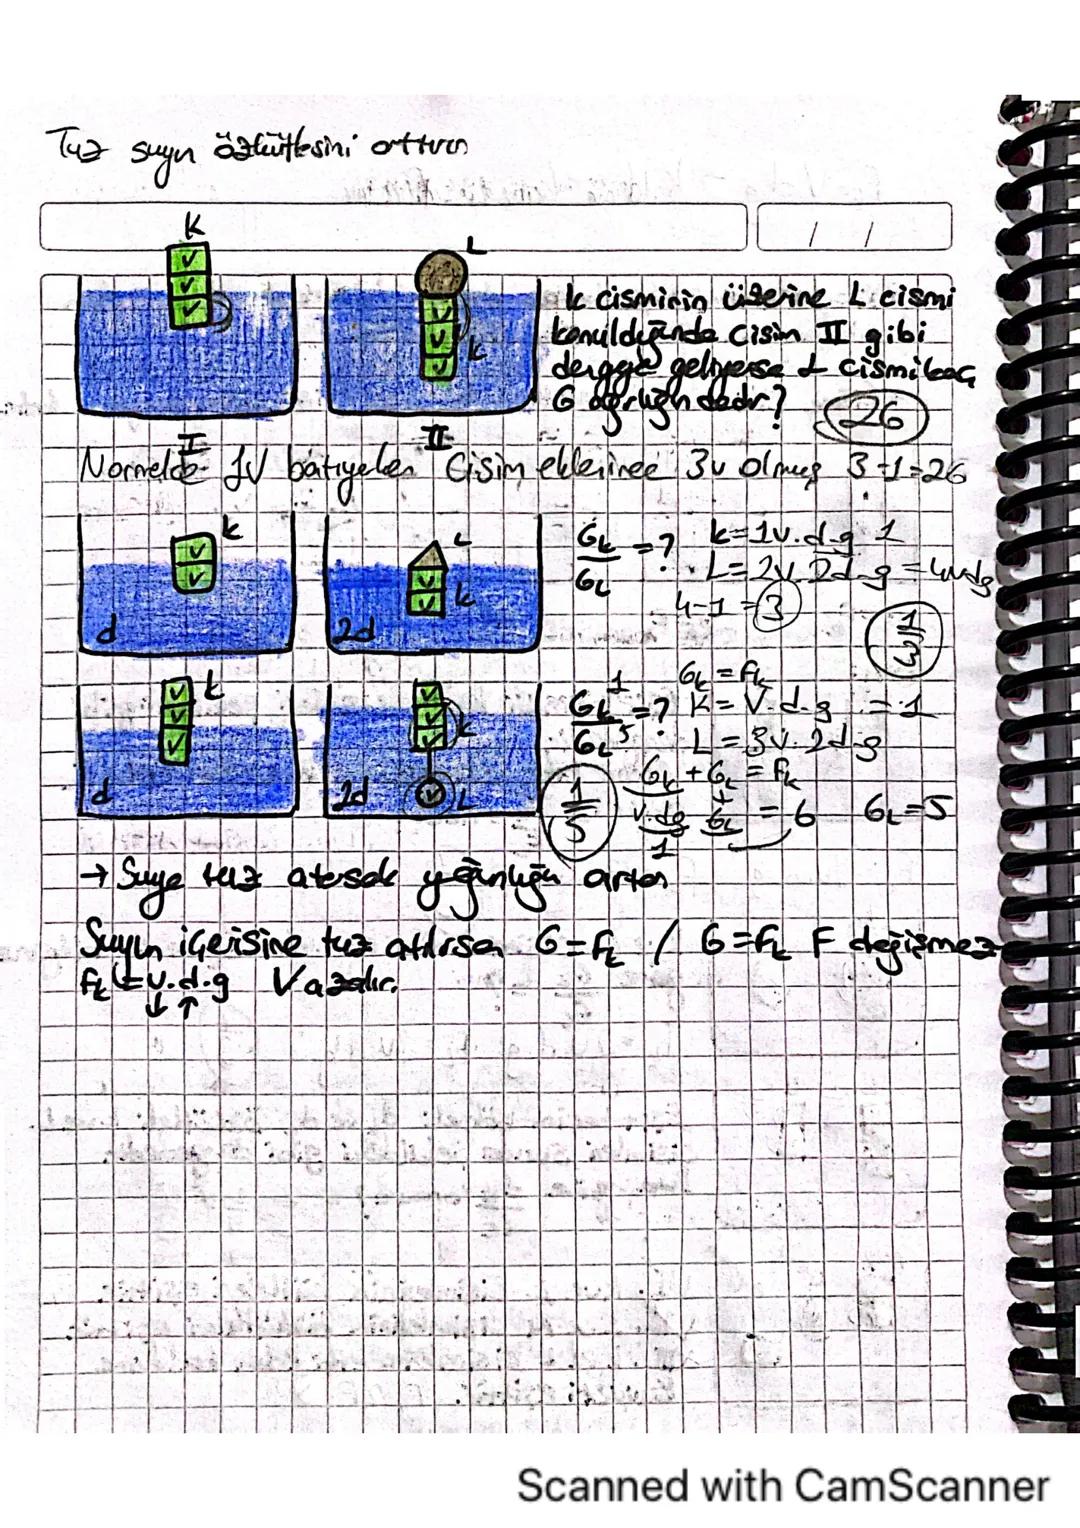 Tuz suyun özkütlesini arttırır
/ /
K
v
v
v
I
L
v
v
v
k
II
k cisminin üzerine L cismi
konulduğunda cisim II gibi
dengeye geliyorsa L cismi kaç
G ağırlığındadır? 2G
Normalde 1V batıyorken Cisim eklenince 3v olmuş 3-1=2G
k
v
v
d
L
v
v
k
2d
Gk/GL = ? k=1v.d.g 1
L=2v.2d.g=4vdg
4-1=3
1/3
k
v
v
v
d
v
v
v
k
v L
2d
Gk 1/GL 5 = ? Gk = Fk
K=V.d.g = 1
L=3v.2d.g
Gk + GL = Fk
v.dg + GL = 6 GL=5
1
1/5
→ Suya tuz atarsak yoğunluğu artar
Suyun içerisine tuz atılırsa G=FL / G=FL F değişmez
FL=v.d.g V azalır.
↓ ↑
Scanned with CamScanner